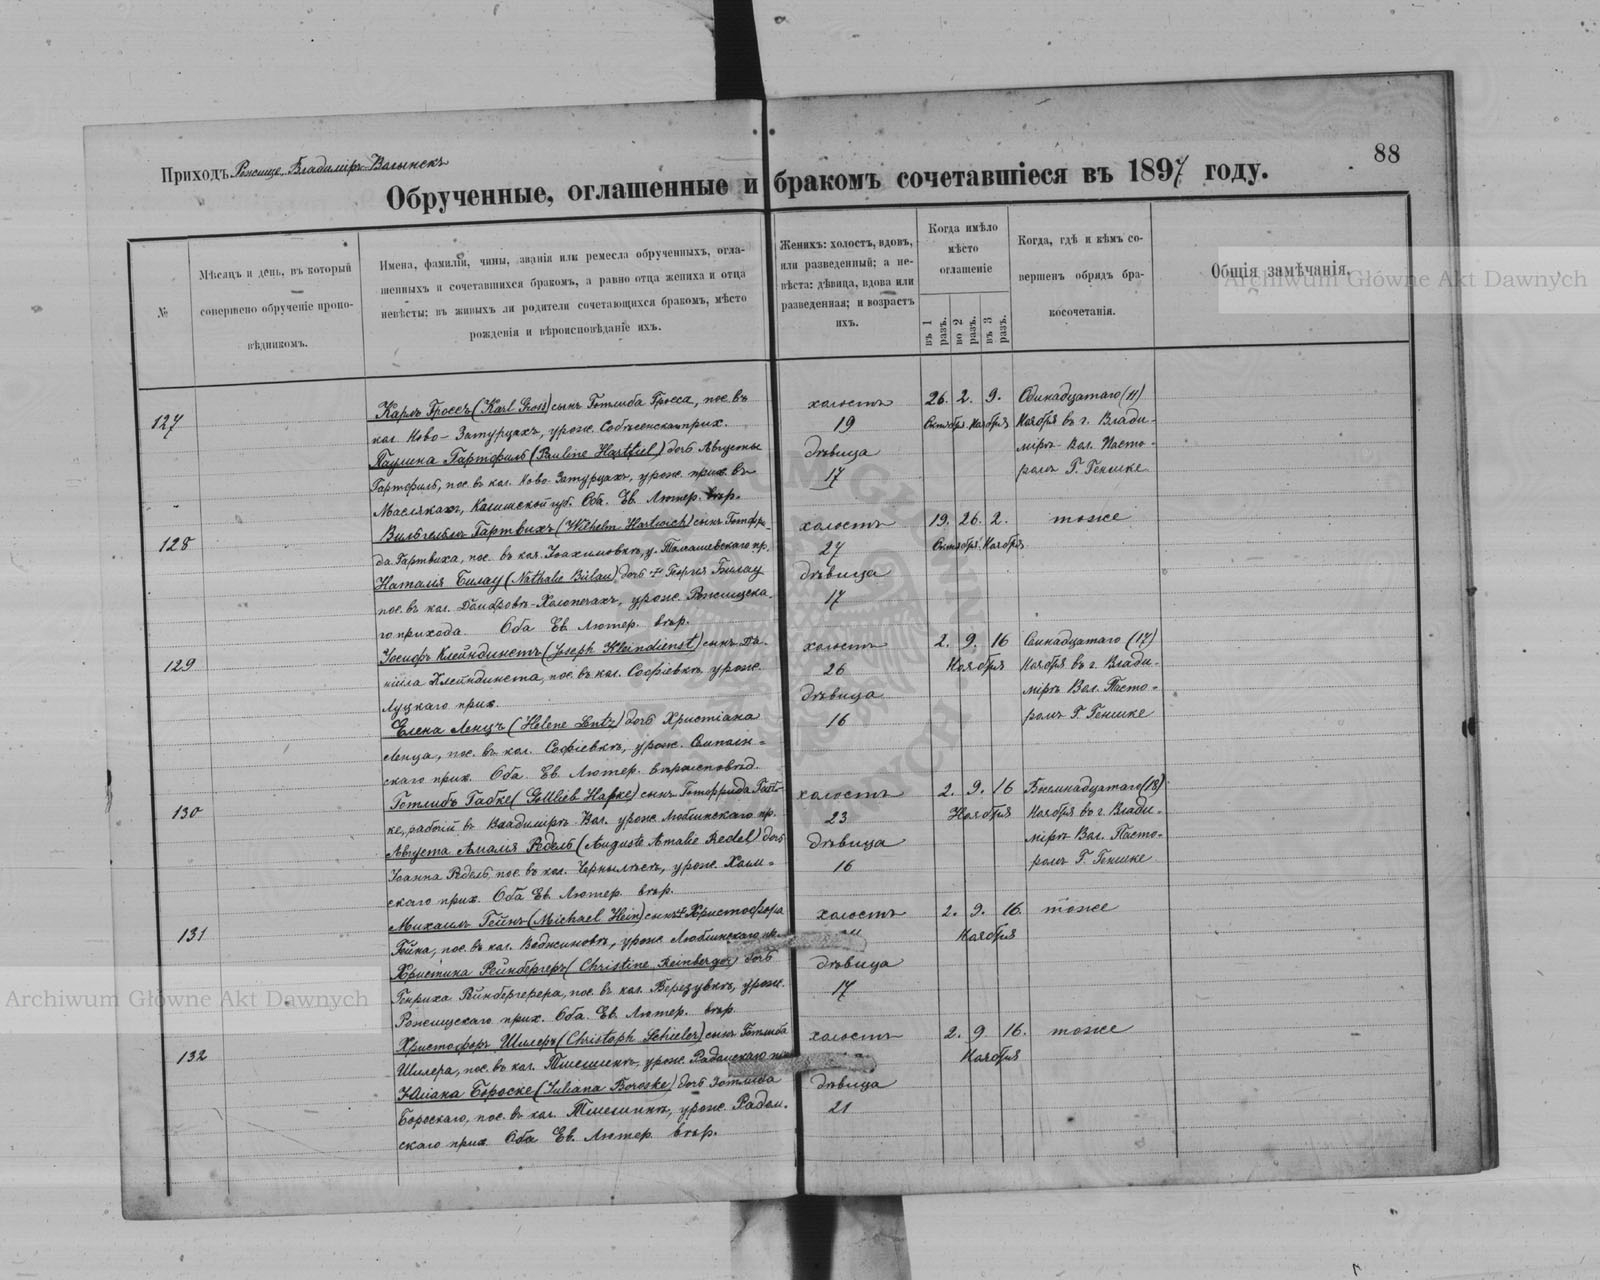 88
Приходъ Рожище, Владиміръ-Волынскъ
Обрученные, оглашенные и бракомъ сочетавшіеся въ 1897 году.
№
Мѣсяцъ и день, въ который
совершено обрученіе пропо-
вѣдникомъ.
Имена, фамиліи, чины, званія или ремесла обрученныхъ, огла-
шенныхъ и сочетавшихся бракомъ, а равно отца жениха и отца
невѣсты; въ живыхъ ли родители сочетающихся бракомъ, мѣсто
рожденія и вѣроисповѣданіе ихъ.
Женихъ: холостъ, вдовъ,
или разведенный; а не-
вѣста: дѣвица, вдова или
разведенная; и возрастъ
ихъ.
Когда имѣло
мѣсто
оглашеніе
въ 1 разъ.
во 2 разъ.
въ 3 разъ.
Когда, гдѣ и кѣмъ со-
вершенъ обрядъ бра-
косочетанія.
Общія замѣчанія.
127
Карлъ Гроссъ (Karl Gross) сынъ Готлиба Гросса, пос. въ
кол. Ново-Затурцахъ, урож. прих.
Паулина Гартфиль (Pauline Hartfiel) дочь Августа
Гартфиль, пос. въ кол. Ново-Затурцахъ, урож. прих. въ
Маслякахъ, Калишской губ. Оба Ев. Лютер. вѣр.
холостъ
19
дѣвица
17
26. 2. 9.
Октября. Ноября
Одинадцатаго (11)
Ноября въ г. Влади-
мірѣ-Вол. Пасто-
ромъ Г. Геншке
128
Вильгельмъ Гартвихъ (Wilhelm Hartwich) сынъ Готфри-
да Гартвиха, пос. въ кол. Іоахимовкѣ, у. Томашевскаго пр.
Наталія Билау (Nathalie Bülau) дочь + Георгія Билау
пос. въ кол. Домбровѣ-Холопечахъ, урож. Рожищска-
го прихода. Оба Ев. Лютер. вѣр.
холостъ
27
дѣвица
17
19. 26. 2.
Октября. Ноября
тоже
129
Іосифъ Клейндинстъ (Joseph Kleindienst) сынъ Да-
ніила Клейндинста, пос. въ кол. Софіевкѣ, урож.
Луцкаго прих.
Елена Ленцъ (Helene Lentz) дочь Христіана
Ленца, пос. въ кол. Софіевкѣ, урож.
скаго прих. Оба Ев. Лютер. вѣроисповѣд.
холостъ
26
дѣвица
16
2. 9. 16
Ноября
Семнадцатаго (17)
Ноября въ г. Влади-
мірѣ Вол. Пасто-
ромъ Г. Геншке
130
Готлибъ Гапке (Gottlieb Hapke) сынъ Готфрида Гап-
ке, рабочій въ Владимірѣ-Вол. урож. Люблинскаго пр.
Августа Амалія Редель (Auguste Amalie Redel) дочь
Іоанна Редель, пос. въ кол. Чернылѣсѣ, урож. Холм-
скаго прих. Оба Ев. Лютер. вѣр.
холостъ
23
дѣвица
16
2. 9. 16
Ноября
Восемнадцатаго (18)
Ноября въ г. Влади-
мірѣ Вол. Пасто-
ромъ Г. Геншке
131
Михаилъ Гейнъ (Michael Hein) сынъ + Христофора
Гейна, пос. въ кол. Воджиновкѣ, урож. Люблинскаго пр.
Христина Рейнбергеръ (Christine Reinberger) дочь
Генриха Рейнбергера, пос. въ кол. Березувкѣ, урож.
Рожищскаго прих. Оба Ев. Лютер. вѣр.
холостъ
дѣвица
17
2. 9. 16.
Ноября
тоже
132
Христофоръ Шилеръ (Christoph Schieler) сынъ Готлиба
Шилера, пос. въ кол. урож. Радомскаго
Юліана Бороске (Juliana Boroske) дочь Готлиба
Бороскаго, пос. въ кол. урож. Радом-
скаго прих. Оба Ев. Лютер. вѣр.
холостъ
дѣвица
21
2. 9 16.
Ноября
тоже
Archiwum Główne Akt Dawnych
Archiwum Główne Akt Dawnych